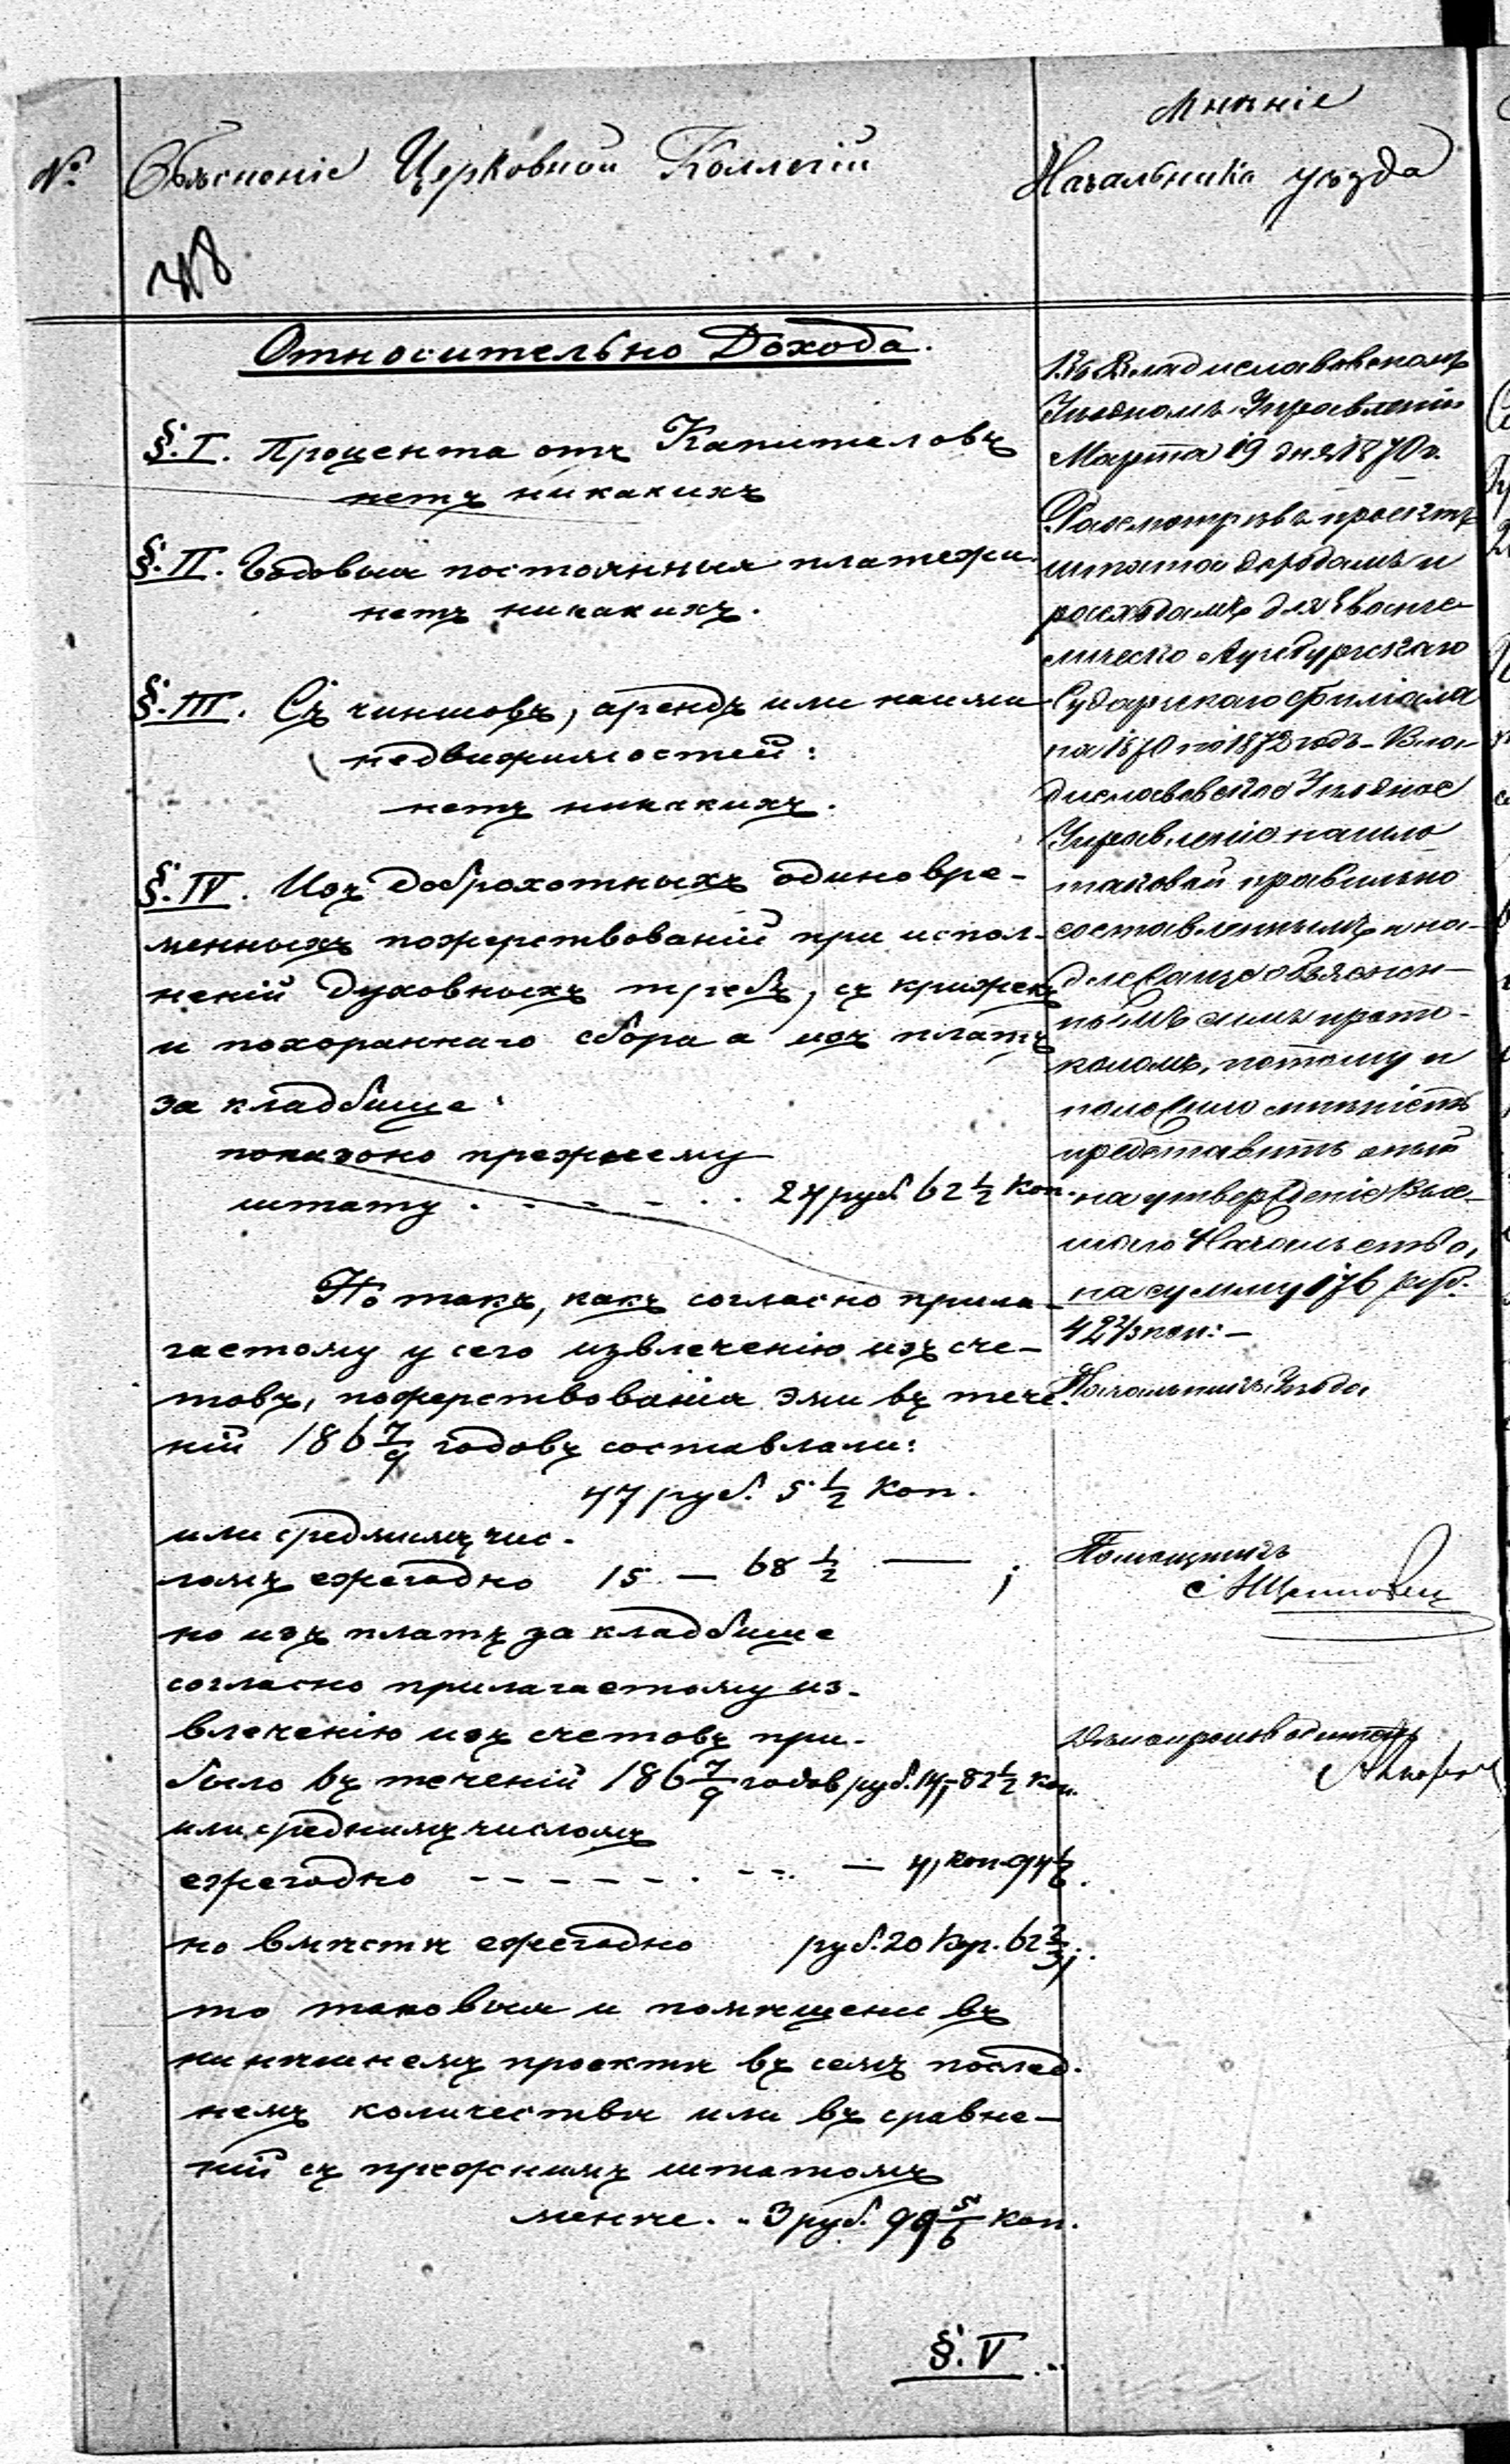 №
Объясненіе Церковной Коллегіи
Мнѣніе
Начальника уѣзда
Относительно Дохода.
§. I. Процента отъ Капиталовъ
нетъ никакихъ
§. II. Годовыя постоянныя платежи
нетъ никакихъ.
§. III. Съ чиншовъ, арендъ или найма
недвижимостей:
нетъ никакихъ.
§. IV. Изъ доброхотныхъ одиновре-
менныхъ пожертвованій при испол-
неній духовныхъ требъ, съ кружекъ
и похороннаго сбора а изъ платъ
за кладбище:
показано прежнему
штату . - - - - . . 24 руб. 62 ½ Коп.
Но такъ, какъ согласно прила-
гаетому у сего извлеченію изъ сче-
товъ, пожертвованія эти въ тече-
ній 186 7/9 годовъ составляли:
47 руб. 5 ½ Коп.
или среднимъ чис-
ломъ ежегодно 15 — 68 ½ — ;
но изъ платъ за кладбище
согласно прилагаетому из-
влеченію изъ счетовъ при-
было въ теченій 186 7/9 годов руб. 14,-82 ½ Коп.
или среднимъ числомъ
ежегодно - - - - - - . - -. — 4, Коп. 94 1/6.
но вмѣстѣ ежегодно руб. 20 Кор. 62 2/3;
то таковыя и помѣщени въ
нинѣшнемъ проектѣ въ семъ послед-
немъ количествѣ или въ сравне-
ній съ прежнимъ штатомъ
менѣе. . 3 руб. 99 5/6 Коп.
§. V
Въ Владиславовскомъ
Уѣздномъ Управленіи
Марта 19 дня 1870 г.
Разсмотрѣвъ проектъ
штата доходамъ и
расходамъ для Еванге-
лическо Аугсбургскаго
Сударгскаго филіала
на 1870 по 1872 годъ - Вла-
диславовское Уѣздное
Управленіе нашло
таковой правильно
составленнымъ и на-
длежаще объяснен-
нымъ симъ прото-
коломъ, потому и
положило мнѣніемъ
представить оный
на утвержденіе Выс-
шаго Начальства,
на сумму 176 руб.
42 2/3 коп: —
Начальникъ Уѣзда
Помощникъ
Дѣлопроизводитель